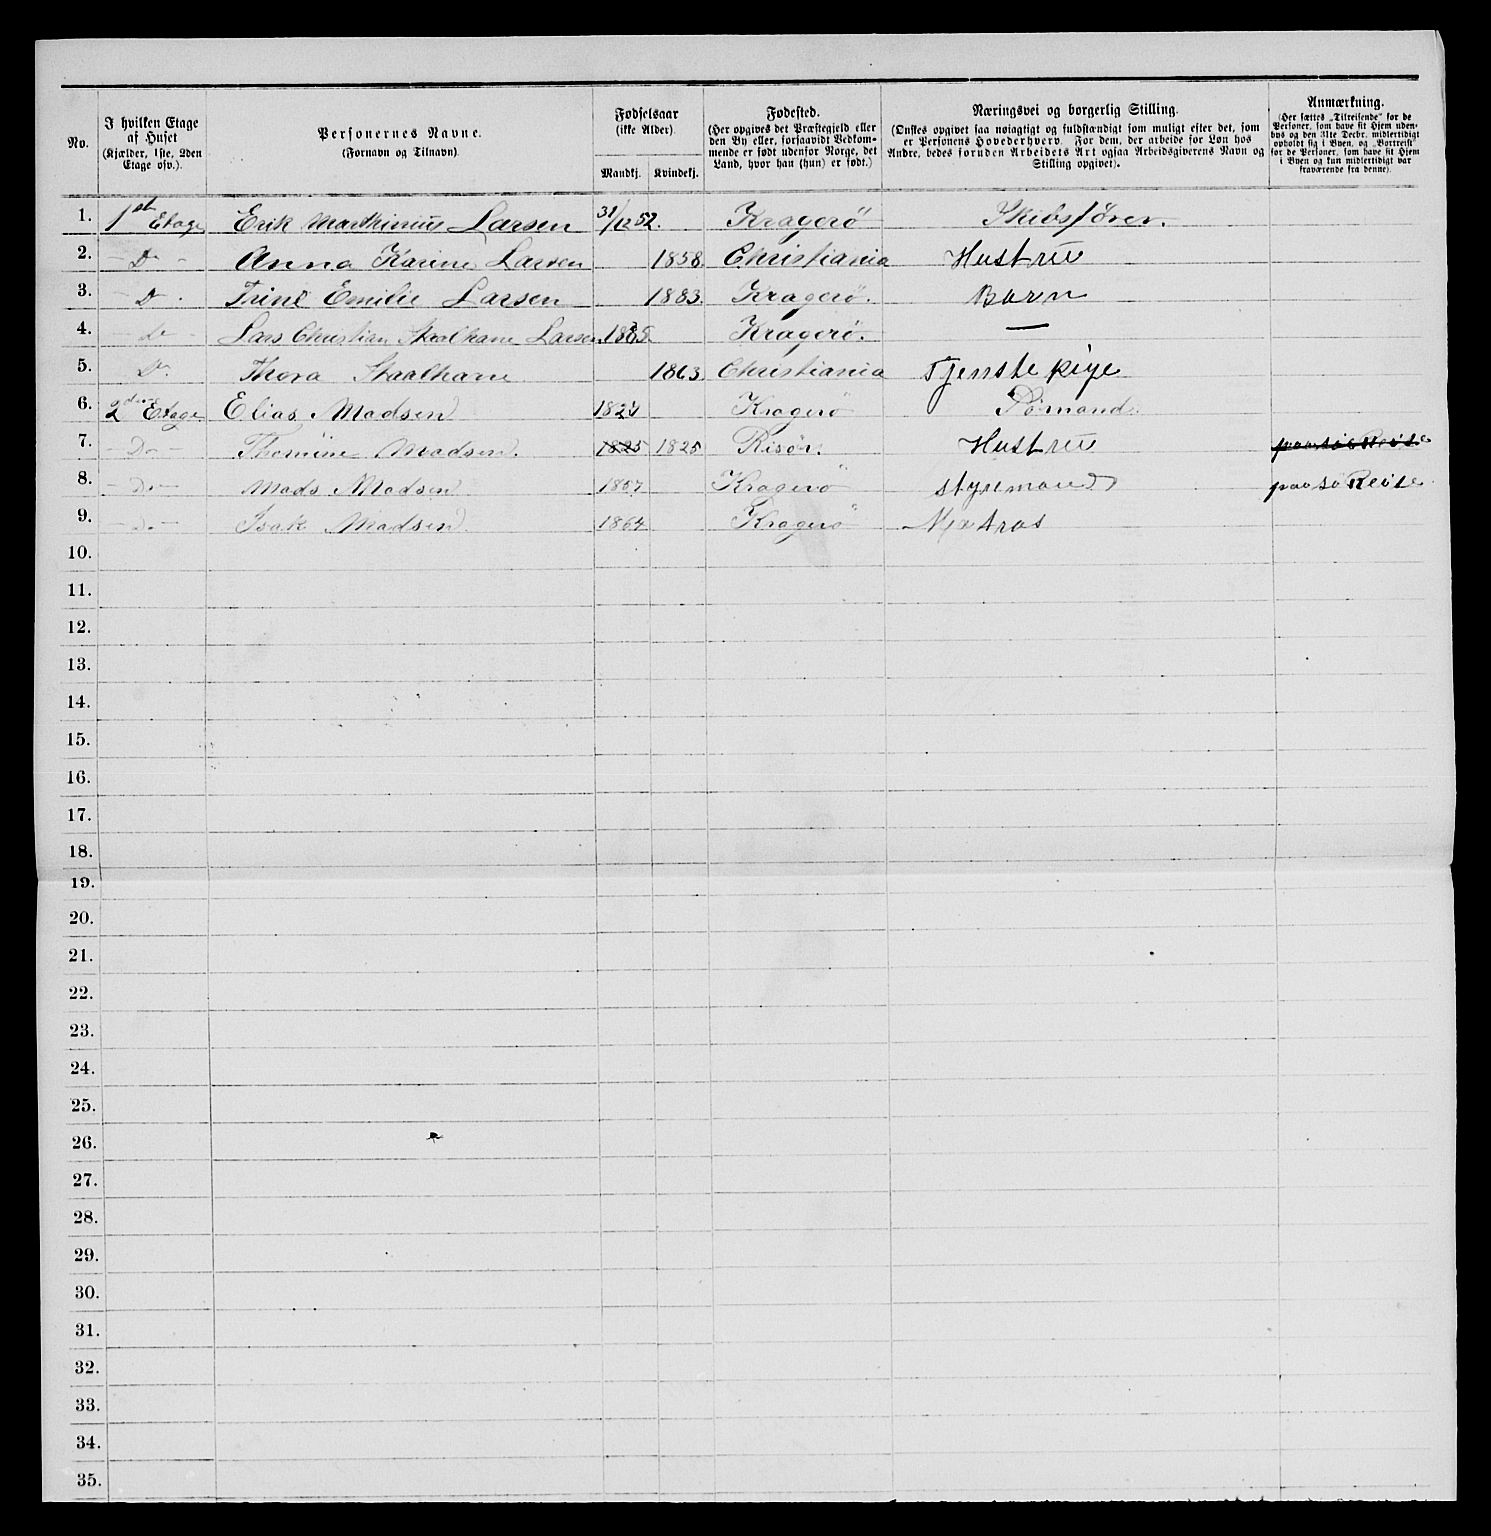 No. | I hvilken Etage af Huset (Kjælder, 1ste, 2den Etage osv.). | Personernes Navne. (Fornavn og Tilnavn). | Fødselsaar (ikke Alder). Mandkj. | Kvindekj. | Fødested. (Her opgives det Præstegjeld eller den By eller, forsaavidt Vedkommende er født udenfor Norge, det Land, hvor han (hun) er født.) | Næringsvei og borgerlig Stilling. (Ønskes opgivet saa nøiagtigt og fuldstændigt som muligt efter det, som er Personens Hovederhverv. For dem, der arbeide for Løn hos Andre, bedes foruden Arbeidets Art ogsaa Arbeidsgiverens Navn og Stilling opgivet). | Anmærkning. (Her sættes „Tilreisende“ for de Personer, som have sit Hjem udenbys og den 31te Decbr. midlertidigt opholdt sig i Byen, og „Bortreist“ for de Personer, som have sit Hjem i Byen og kun midlertidigt var fraværende fra denne).
1. | 1st Etage | Erik Marthinius Larsen | 31/12 52. | | Kragerö | Skibsfører. |
2. | - Do - | Anna Karine Larsen | | 1858. | Christiania | Hustru |
3. | - Do - | Trine Emilie Larsen | | 1883. | Kragerö. | Barn |
4. | - Do | Lars Christian Staalhane Larsen | 1885. | | Kragerö. | — |
5. | Do. | Thora Staalhane | | 1863. | Christiania | Tjenste pige |
6. | 2den Etage | Elias Madsen | 1824 | | Kragerö | Sømand. |
7. | - Do - | Thomine Madsen. | 1825 | 1825 | Risör. | Hustru | paa sø Reise
8. | - Do - | Mads Madsen | 1857 | | Kragerö | styrmand | paa sø Reise
9. | - Do - | Isak Madsen. | 1864 | | Kragerö | Matros |
10.
11.
12.
13.
14.
15.
16.
17.
18.
19.
20.
21.
22.
23.
24.
25.
26.
27.
28.
29.
30.
31.
32.
33.
34.
35.